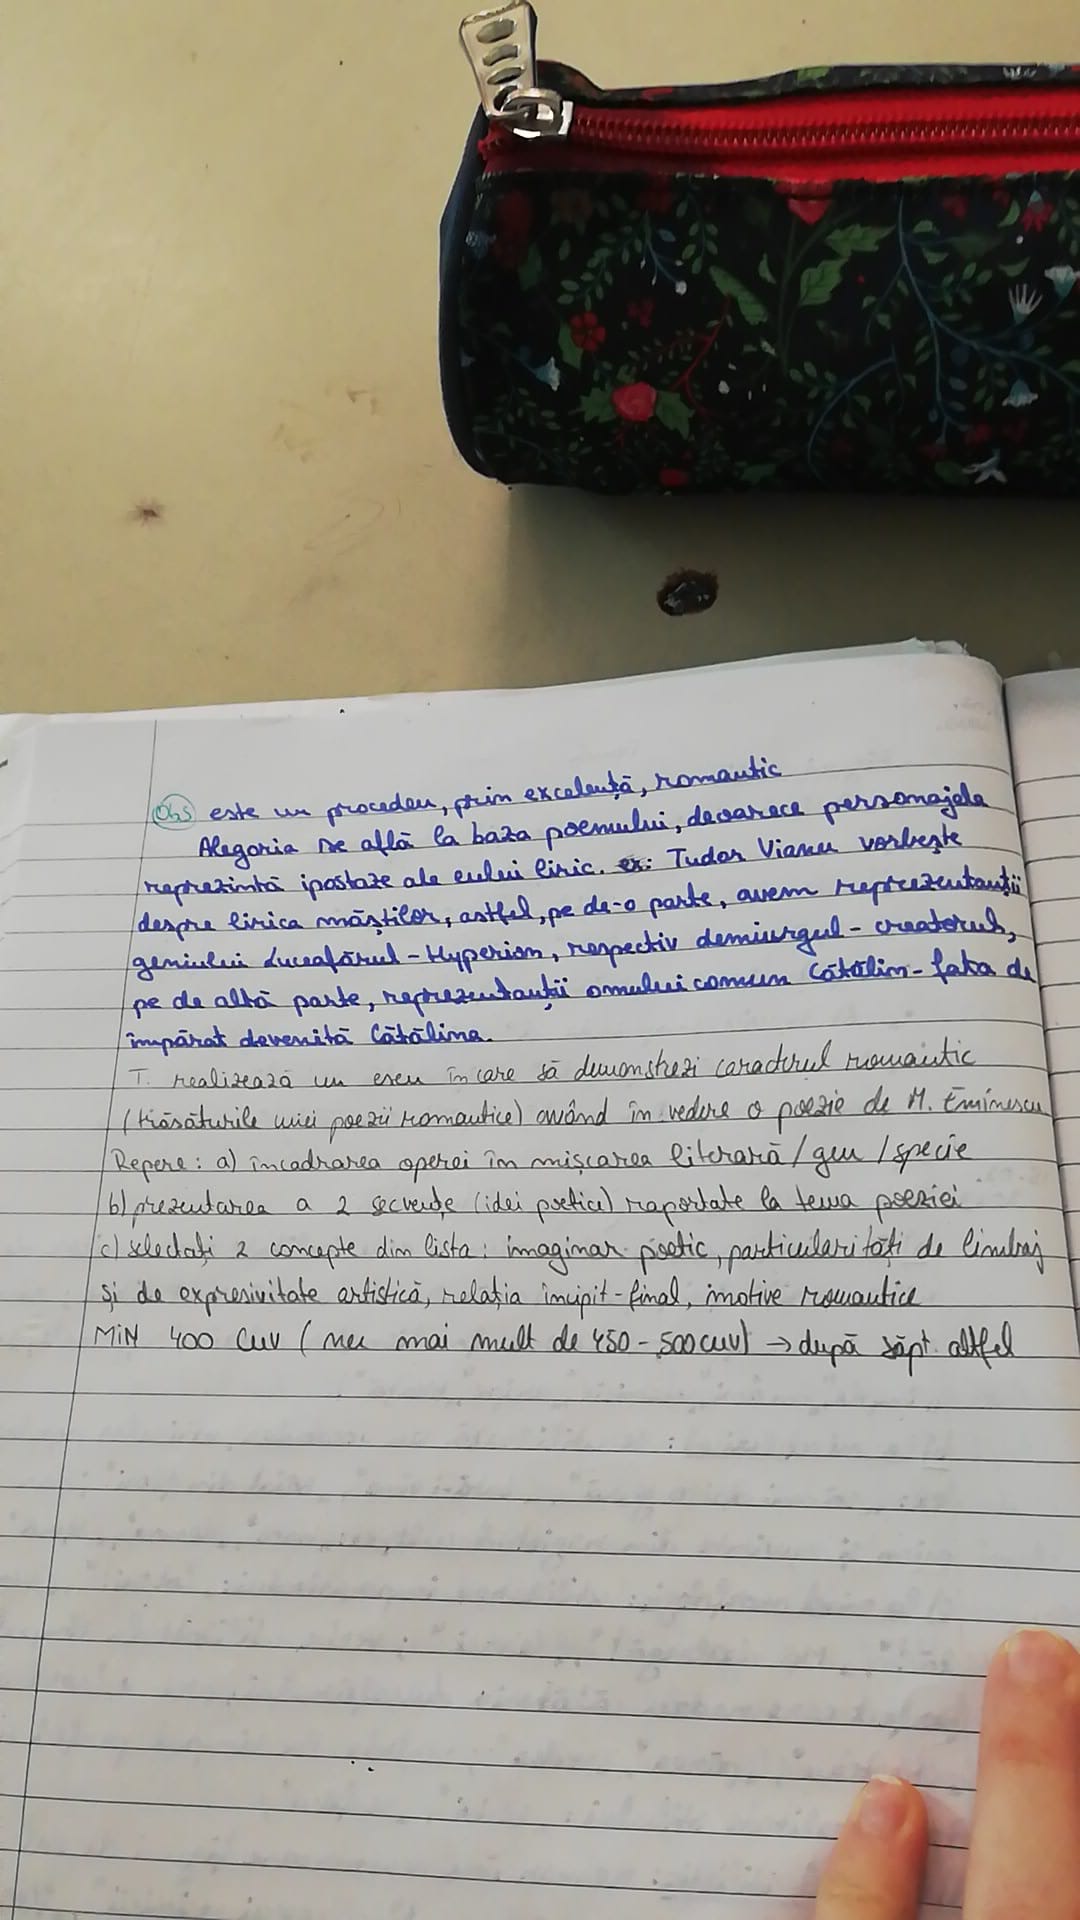 Obs este un procedeu, prin excelență, romantic
Alegoria se află la baza poemului, deoarece personajele
reprezintă ipostaze ale eului liric. ex: Tudor Vianu vorbește
despre lirica măștilor, astfel, pe de-o parte, avem reprezentanții
geniului Luceafărul - Hyperion, respectiv demiurgul - creatorul,
pe de altă parte, reprezentanții omului comun Cătălin - fata de
împărat devenită Cătălina.
T. realizează un eseu în care să demonstrezi caracterul romantic
(trăsăturile unei poezii romantice) având în vedere o poezie de M. Eminescu
Repere: a) încadrarea operei în mișcarea literară / gen / specie
b) prezentarea a 2 secvențe (idei poetice) raportate la tema poeziei
c) selectați 2 concepte din lista: imaginar poetic, particularități de limbaj
și de expresivitate artistică, relația incipit - final, motive romantice
MIN 400 cuv (nu mai mult de 450 - 500 cuv) → după săpt. altfel